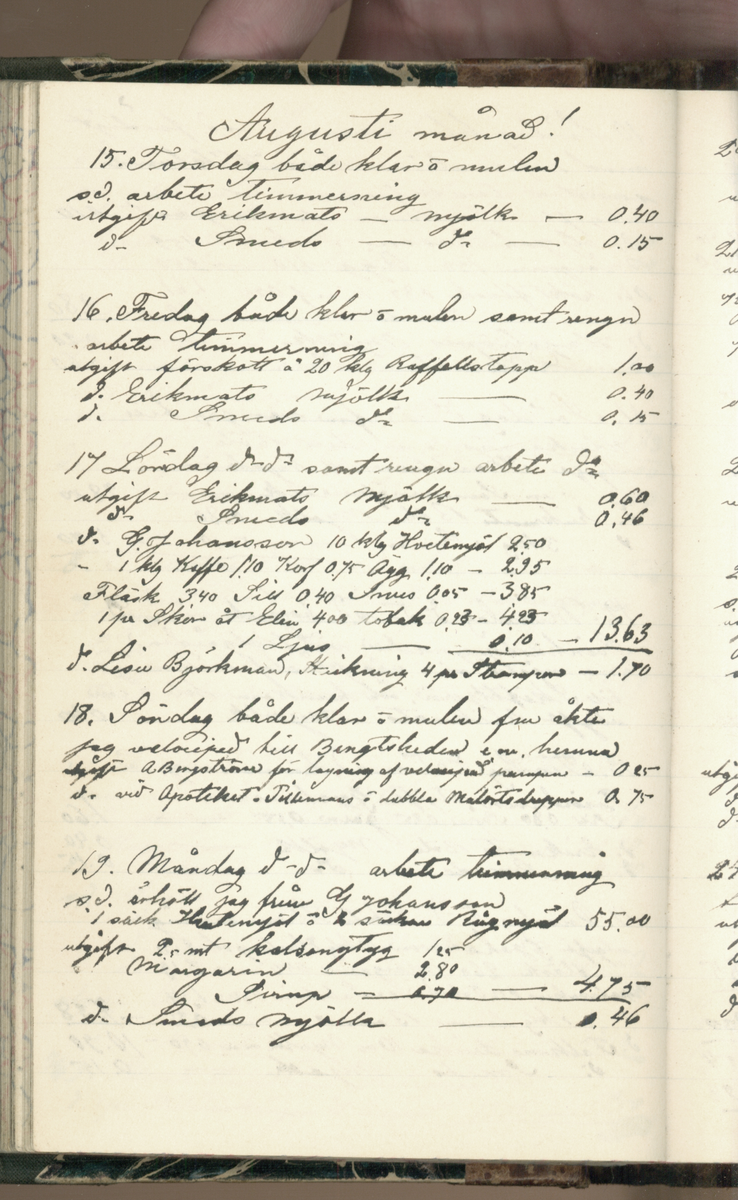 Augusti månad!
15. Torsdag både klar o mulen
sd. arbete timmerning
utgift Erikmats — mjölk — 0.40
d. Smeds — do — 0.15
16. Fredag både klar o mulen samt rengn
arbete timmerning
utgift förskott å 20 klg Raffeltopp 1.00
d. Erikmats mjölk — 0.40
d. Smeds do — 0.15
17 Lördag d-do samt rengn arbete do
utgift Erikmats mjölk — 0.60
d. Smeds do 0.46
d. G. Johansson 10 klg Hvetemjöl 2.50
- 1 klg Kaffe 1.10 Korf 0.75 Ägg 1.10 - 2.95
Fläsk 3.40 Sill 0.40 Snus 0.05 - 3.85
1 pr Skor åt Elin 4.00 tobak 0.23 - 4.23
1 Ljus — 0.10 - 13.63
d. Lisa Björkman, Stickning 4 pr Strumpor — 1.70
18. Söndag både klar o mulen fm åkte
jag velociped till Bengtsheden e.m. hemma
utgift A Bergström för lagning af velociped pumpen - 0.25
d. vid Apoteket. Tillemans o dubbla Malörtsdroppar 0.75
19. Måndag d-d- arbete timmerning
sd. erhöll jag från G Johansson
1 säck Hvetemjöl o 2 säckar Rågmjöl 55.00
utgift 2,5 mt kalsongtyg 1.25
Margarin — 2.80
Sirup — 0.70 — 4.75
d. Smeds mjölk — 0.46